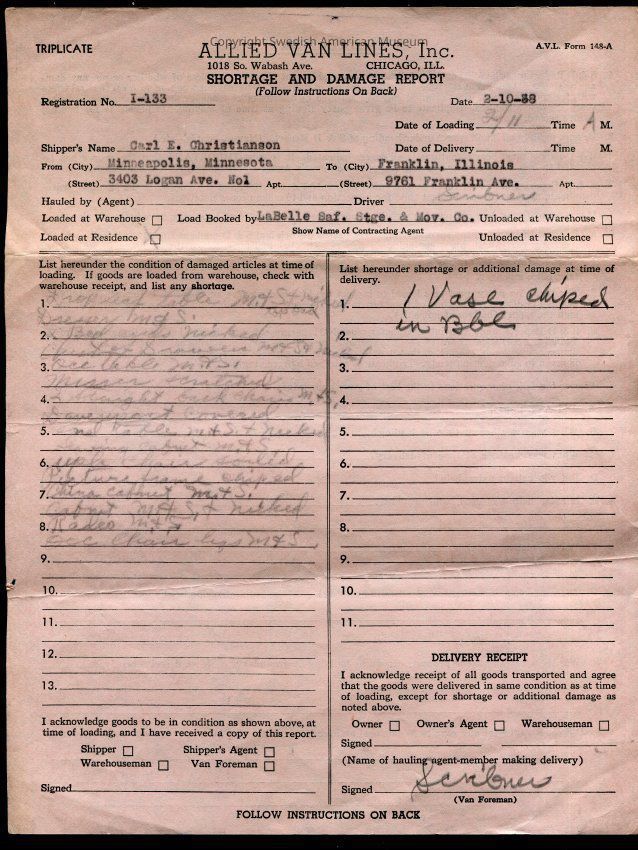 Copyright Swedish American Museum
TRIPLICATE
ALLIED VAN LINES, Inc.
A.V.L. Form 148-A
1018 So. Wabash Ave. CHICAGO, ILL.
SHORTAGE AND DAMAGE REPORT
(Follow Instructions On Back)
Registration No. I-133 Date 2-10-38
Date of Loading 2/11 Time A M.
Shipper's Name Carl E. Christianson Date of Delivery Time M.
From (City) Minneapolis, Minnesota To (City) Franklin, Illinois
(Street) 3403 Logan Ave. No1 Apt. (Street) 9761 Franklin Ave. Apt.
Hauled by (Agent) Driver Scribner
Loaded at Warehouse Load Booked by LaBelle Saf. Stge. & Mov. Co. Unloaded at Warehouse
Show Name of Contracting Agent
Loaded at Residence Unloaded at Residence
List hereunder the condition of damaged articles at time of
loading. If goods are loaded from warehouse, check with
warehouse receipt, and list any shortage.
1. Drop leaf table M&S & nicked
Dresser M&S.
2. nicked
M&S &
3. Occ table M&S.
Mirror scratched
4. 2 straight back chairs M&S,
Davenport covered
5. end table M&S & nicked
cabnet M&S.
6. chair soiled
Picture frame chiped
7. China cabnet M&S.
Cabnet M&S, & nicked
8. Radeo M&S
Occ chair legs M&S
9.
10.
11.
12.
13.
I acknowledge goods to be in condition as shown above, at
time of loading, and I have received a copy of this report.
Shipper Shipper's Agent
Warehouseman Van Foreman
Signed
List hereunder shortage or additional damage at time of
delivery.
1. 1 Vase chiped
2. in Bbl
3.
4.
5.
6.
7.
8.
9.
10.
11.
DELIVERY RECEIPT
I acknowledge receipt of all goods transported and agree
that the goods were delivered in same condition as at time
of loading, except for shortage or additional damage as
noted above.
Owner Owner's Agent Warehouseman
Signed
(Name of hauling agent-member making delivery)
Signed Scribner
(Van Foreman)
FOLLOW INSTRUCTIONS ON BACK